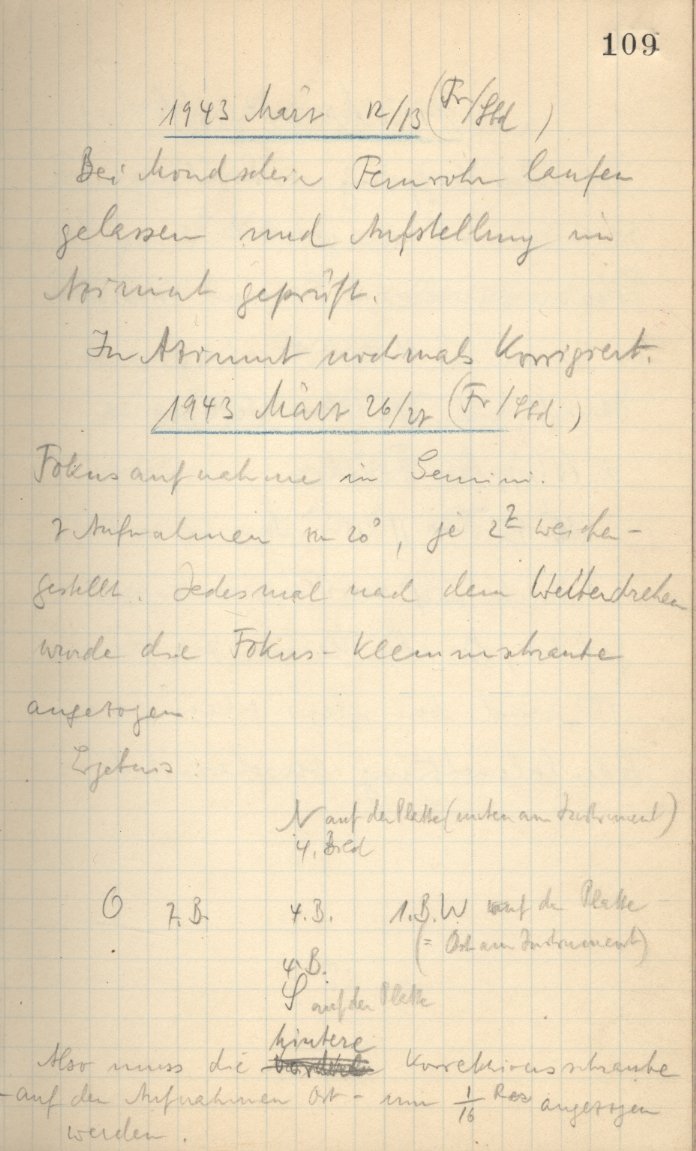 109
1943 März 12/13 (Fr/Sbd)
Bei Mondschein Fernrohr laufen
gelassen und Aufstellung im
Azimut geprüft.
In Azimut nochmals korrigiert.
1943 März 26/27 (Fr/Sbd)
Fokusaufnahme in Gemini.
7 Aufnahmen zu 20°, je 2 weiter-
gestellt. Jedesmal nach dem Weiterdrehen
wurde die Fokus-Klemmschraube
angezogen
Ergebnis:
N auf der Platte (unten am Instrument)
4. Bild
O 7. B. 4. B. 1. B. W auf der Platte
(= Ost am Instrument)
4. B.
S auf der Platte
hintere
Also muss die Korrektionsschraube
- auf den Aufnahmen Ost - um 1/16 angezogen
werden.